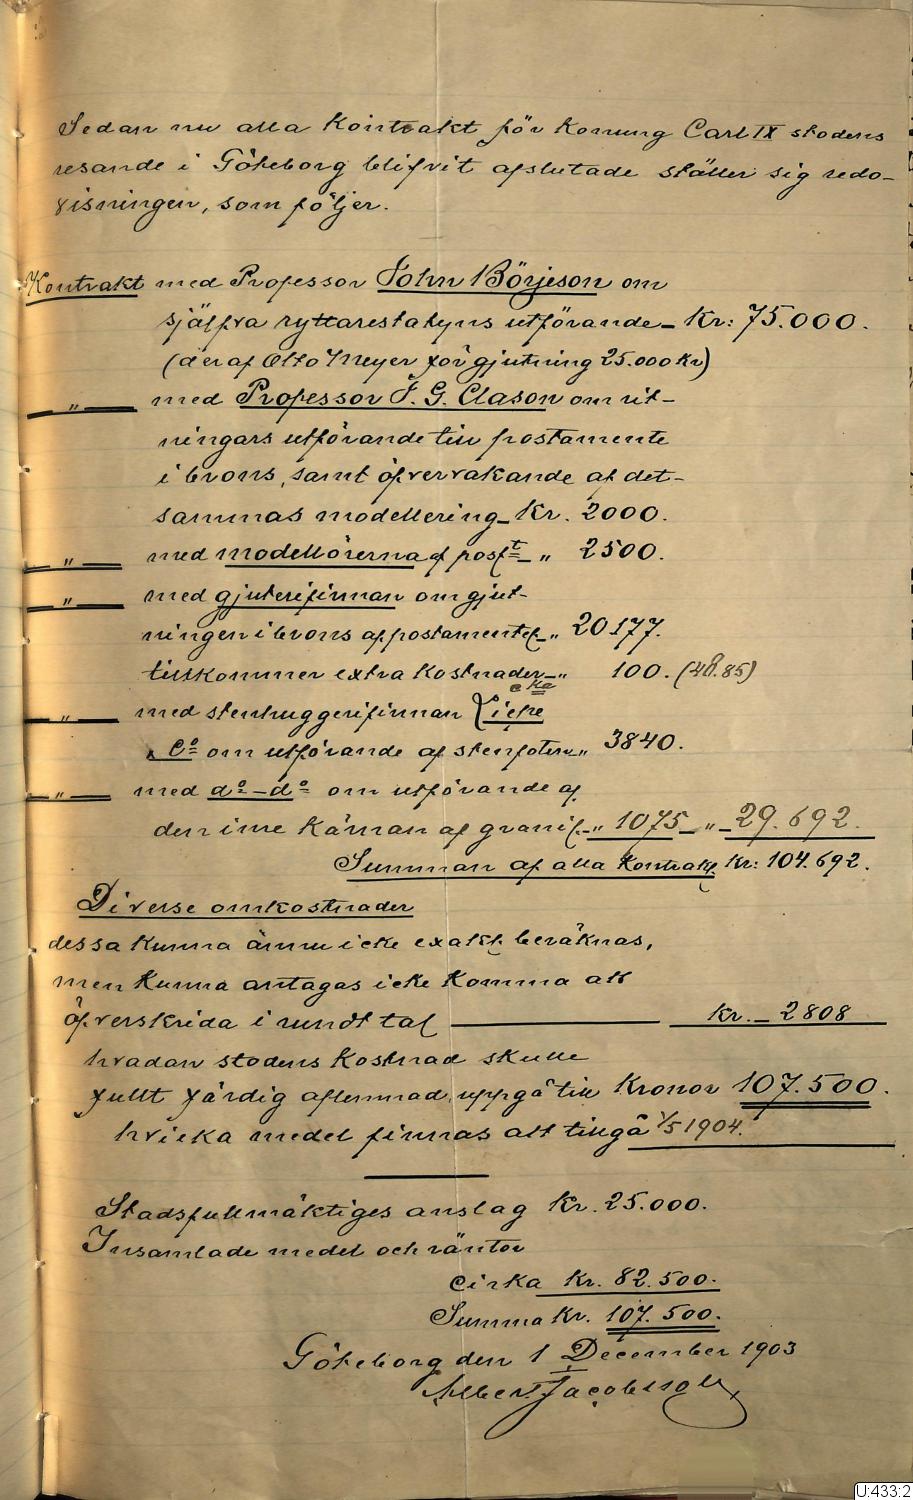 Sedan nu alla Kontrakt för Konung Carl IX stodens
resande i Göteborg blifvit afslutade ställer sig redo-
visningen, som följer.
Kontrakt med Professor John Börjeson om
själfva ryttarestatyns utförande - Kr: 75.000.
(deraf Otto Meyer för gjutning 25.000 Kr)
— " — med Professor I. G. Clason om rit-
ningars utförande till postamente
i brons, samt öfvervakande af det-
sammas modellering - Kr. 2000.
— " — med modellörerna af post:t - " 2500.
— " — med gjuterifirman om gjut-
ningen i brons af postamentet - " 20177.
tillkommer extra kostnader - " 100. (48.85)
— " — med stenhuggerifirman
& Co om utförande af stenfoten " 3840.
— " — med do - do om utförande af
den inre kärnan af granit - " 1075 - " - 29.692.
Summan af alla Kontrakt Kr: 104.692.
Diverse omkostnader
dessa kunna ännu icke exakt beräknas,
men kunna antagas icke komma att
öfverskrida i rundt tal — kr. - 2808
hvadan stodens kostnad skulle
fullt färdig aflemnad uppgå till Kronor 107.500.
hvilka medel finnas att tillgå 1/5 1904.
Stadsfullmäktiges anslag Kr. 25.000.
Insamlade medel och räntor
cirka Kr. 82.500.
Summa Kr. 107.500.
Göteborg den 1 December 1903
Albert Jacobsson
U:433:2